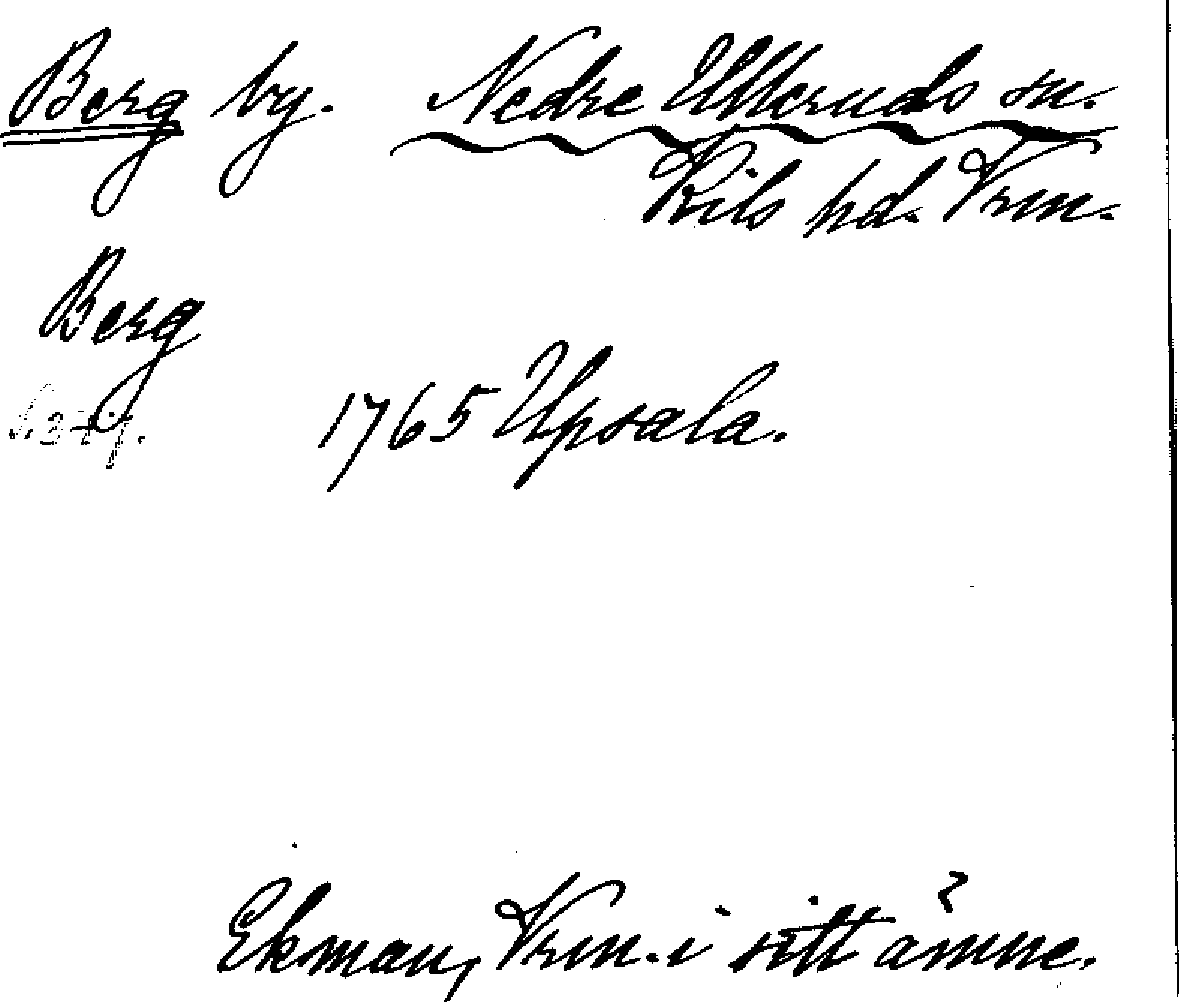 Berg by. Nedre Ulleruds sn.
Kils hd. Vrm.
Berg
1765 Upsala.
Ekman, Vrm. i sitt ämne.